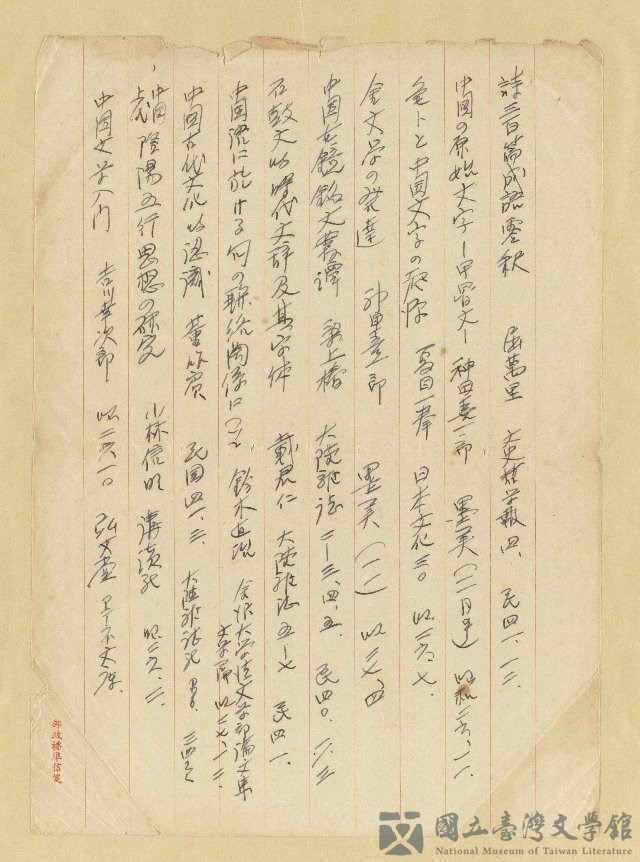 詩三百篇成語零釈 屈萬里 文史哲学報四、民四一、一二、
中國の原始文字ー甲骨文ー 神田喜一郎 墨美(一二月号) 昭和二六、一一、
亀卜と中国文字の起源 貝塚 日本文化三〇 昭二六、七、
金文学の発達 神田喜一郎 墨美(一一) 昭二七、四
中国古鏡銘文叢譚 梁上椿 大陸雑誌二ー三、四、五、民四〇、二、三
石鼓文的時代文辞及其字体 戴君仁 大陸雑誌五ー七 民四一、
中国語に於ける句の聯絡関係について 鈴木直治 金沢大学法文学部論文集
文学篇 昭二七、一二、
中国古代文化的認識 董作賓 民国四一、三、大陸雑誌
中国上代陰陽五行思想の研究 小林信明 講談社 昭二六、二、
中国文学入門 吉川幸次郎 昭二六、一〇 弘文堂 アテネ文庫、
郵政標準信箋
國立臺灣文學館
National Museum of Taiwan Literature